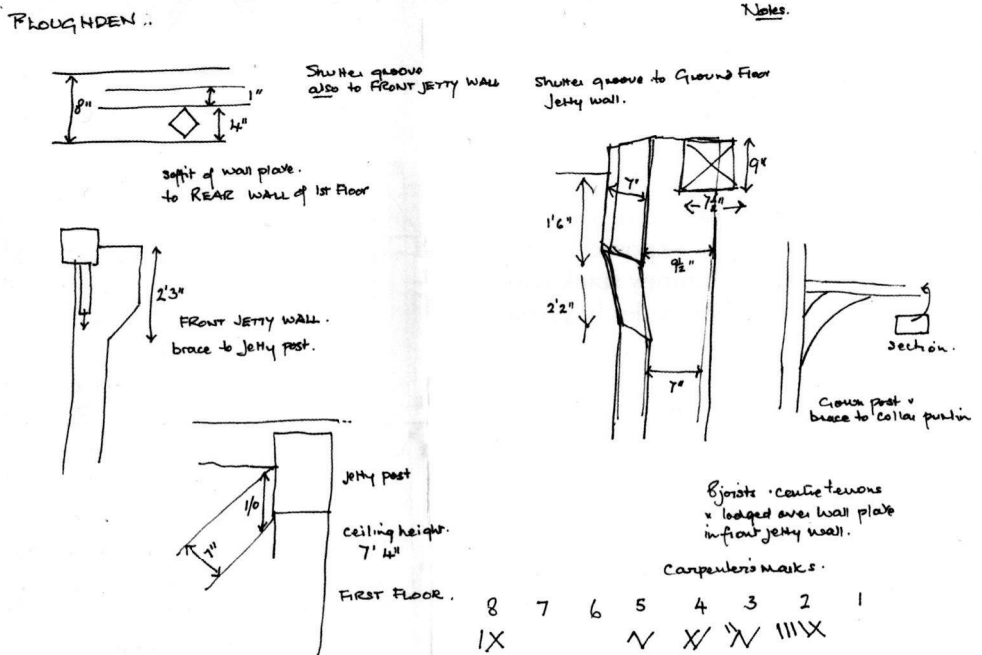 PLOUGHDEN..
Notes.
8"
1"
4"
Shutter groove
also to FRONT JETTY WALL
soffit of wall plate.
to REAR WALL of 1st Floor
2'3"
FRONT JETTY WALL.
brace to Jetty post.
1/0
7"
Jetty post
ceiling height.
7' 4"
FIRST FLOOR.
Shutter groove to Ground Floor
Jetty wall.
7"
9"
7½"
1'6"
9½"
2'2"
7"
section.
Crown post &
brace to collar purlin
8 joists · centre tenons
& lodged over wall plate
in front jetty wall.
Carpenter's marks.
8 7 6 5 4 3 2 1
IX